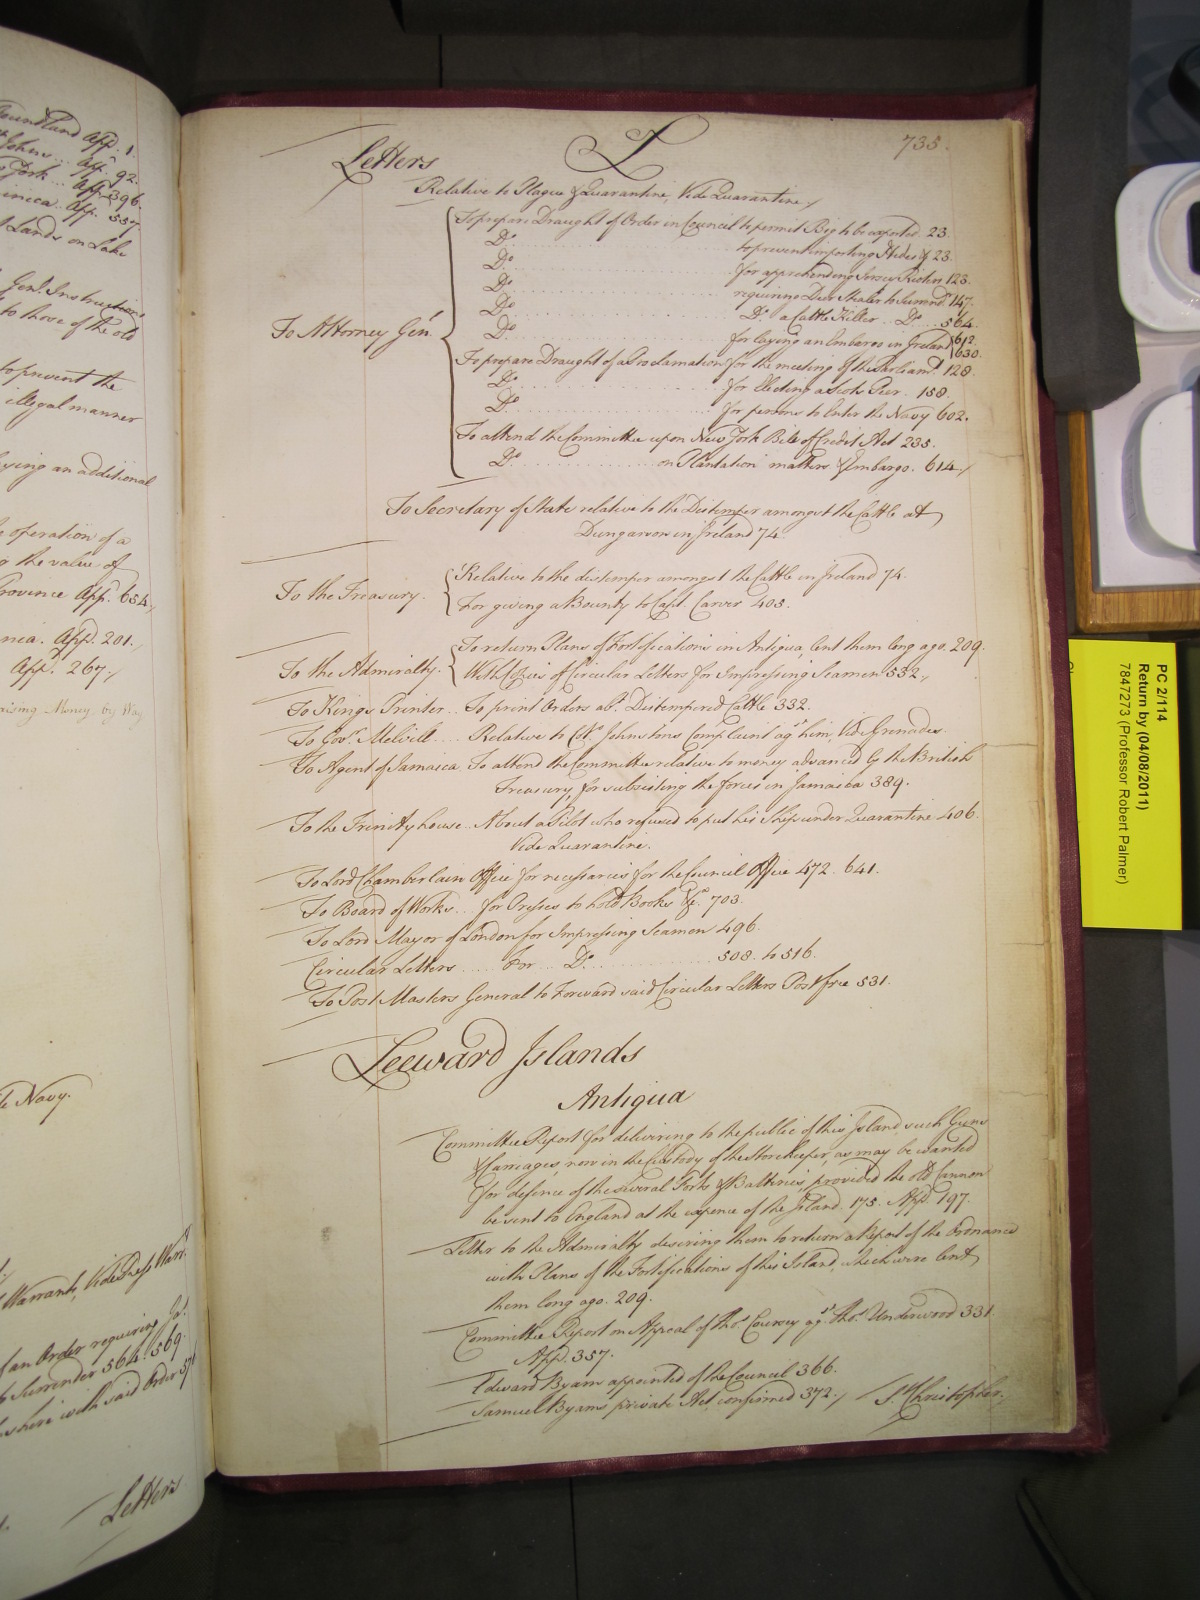 foundland App. 1.
Johns... App. 92.
York... App. 396.
inica. App. 557.
Lands on Lake
Genl. Instructions
to those of the old
to prevent the
illegal manner
ying an additional
operation of a
the value of
rovince App. 654
App. 201.
App. 267
aising Money by Way
Navy.
Warrants, Vide Press Warr.ts
of an Order requiring
Surrender 564. 569.
where with said Order
Letters
L
735.
Letters
Relative to Plague & Quarantine, Vide Quarantine
To Attorney Gen.l
To prepare Draught of Order in Council to permit Bigg to be exported. 23.
Do. to prevent importing Hides &c 23.
Do. for apprehending Jersey Rioters 123.
Do. requiring Deer Stealer to Surrendr. 147.
Do. Do. a Cattle Killer.. Do. .. 564.
Do. for laying an Embargo in Ireland 612. 630.
To prepare Draught of a Proclamation for the meeting of the Parliamt. 128.
Do. for Electing a Scots Peer. 158.
Do. for persons to Enter the Navy 602.
To attend the Committee upon New York Bills of Credit Act 235.
Do. on Plantation matters & Embargo. 614
To Secretary of State relative to the Distemper amongst the Cattle at
Dungarvon in Ireland 74.
To the Treasury.
Relative to the distemper amongst the Cattle in Ireland 74.
For giving a Bounty to Capt. Carver 405.
To the Admiralty.
To return Plans of Fortifications in Antigua, lent them long ago. 209.
With Copies of Circular Letters for Impressing Seamen 532
To Kings Printer.. To print Orders abt. Distempered Cattle 332.
To Govr. Melvill.... Relative to Johnstons Complaint agst. him, Vide Grenades.
To Agent of Jamaica To attend the Committee relative to money advanced by the British
Treasury, for subsisting the forces in Jamaica 389.
To the Trinity house.. About a Pilot who refused to put his Ship under Quarantine 406.
Vide Quarantine.
To Lord Chamberlain Office for necessaries for the Council Office 472. 641.
To Board of Works... for Presses to hold Books &c. 703.
To Lord Mayor of London for Impressing Seamen 496.
Circular Letters .... For ... Do. ........ 508. to 516.
To Post Masters General to Forward said Circular Letters Post free 531.
Leeward Islands
Antigua
Committee Report for delivering to the public of this Island such Guns
& Carriages, now in the Custody of the Storekeeper, as may be wanted
for defence of the several Forts & Batteries, provided the old Cannon
be sent to England at the expence of the Island. 175. App. 197.
Letter to the Admiralty desiring them to return a Report of the Ordnance
with Plans of the Fortifications of this Island, which were lent
them long ago. 209.
Committee Report on Appeal of Thos. Coursey agst. Thos. Underwood 331
App. 357.
Edward Byam appointed of the Council 366.
Samuel Byams private Act confirmed 372.
St. Christopher.
PC 2/114
Return by (04/08/2011)
7847273 (Professor Robert Palmer)